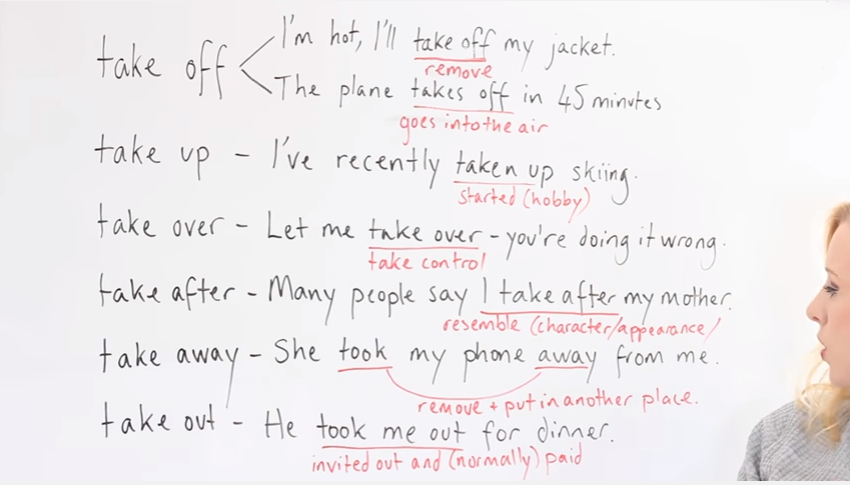 take off < I'm hot, I'll take off my jacket.
remove
The plane takes off in 45 minutes
goes into the air
take up - I've recently taken up skiing.
started (hobby)
take over - Let me take over - you're doing it wrong.
take control
take after - Many people say I take after my mother.
resemble (character/appearance/
take away - She took my phone away from me.
remove + put in another place.
take out - He took me out for dinner.
invited out and (normally) paid